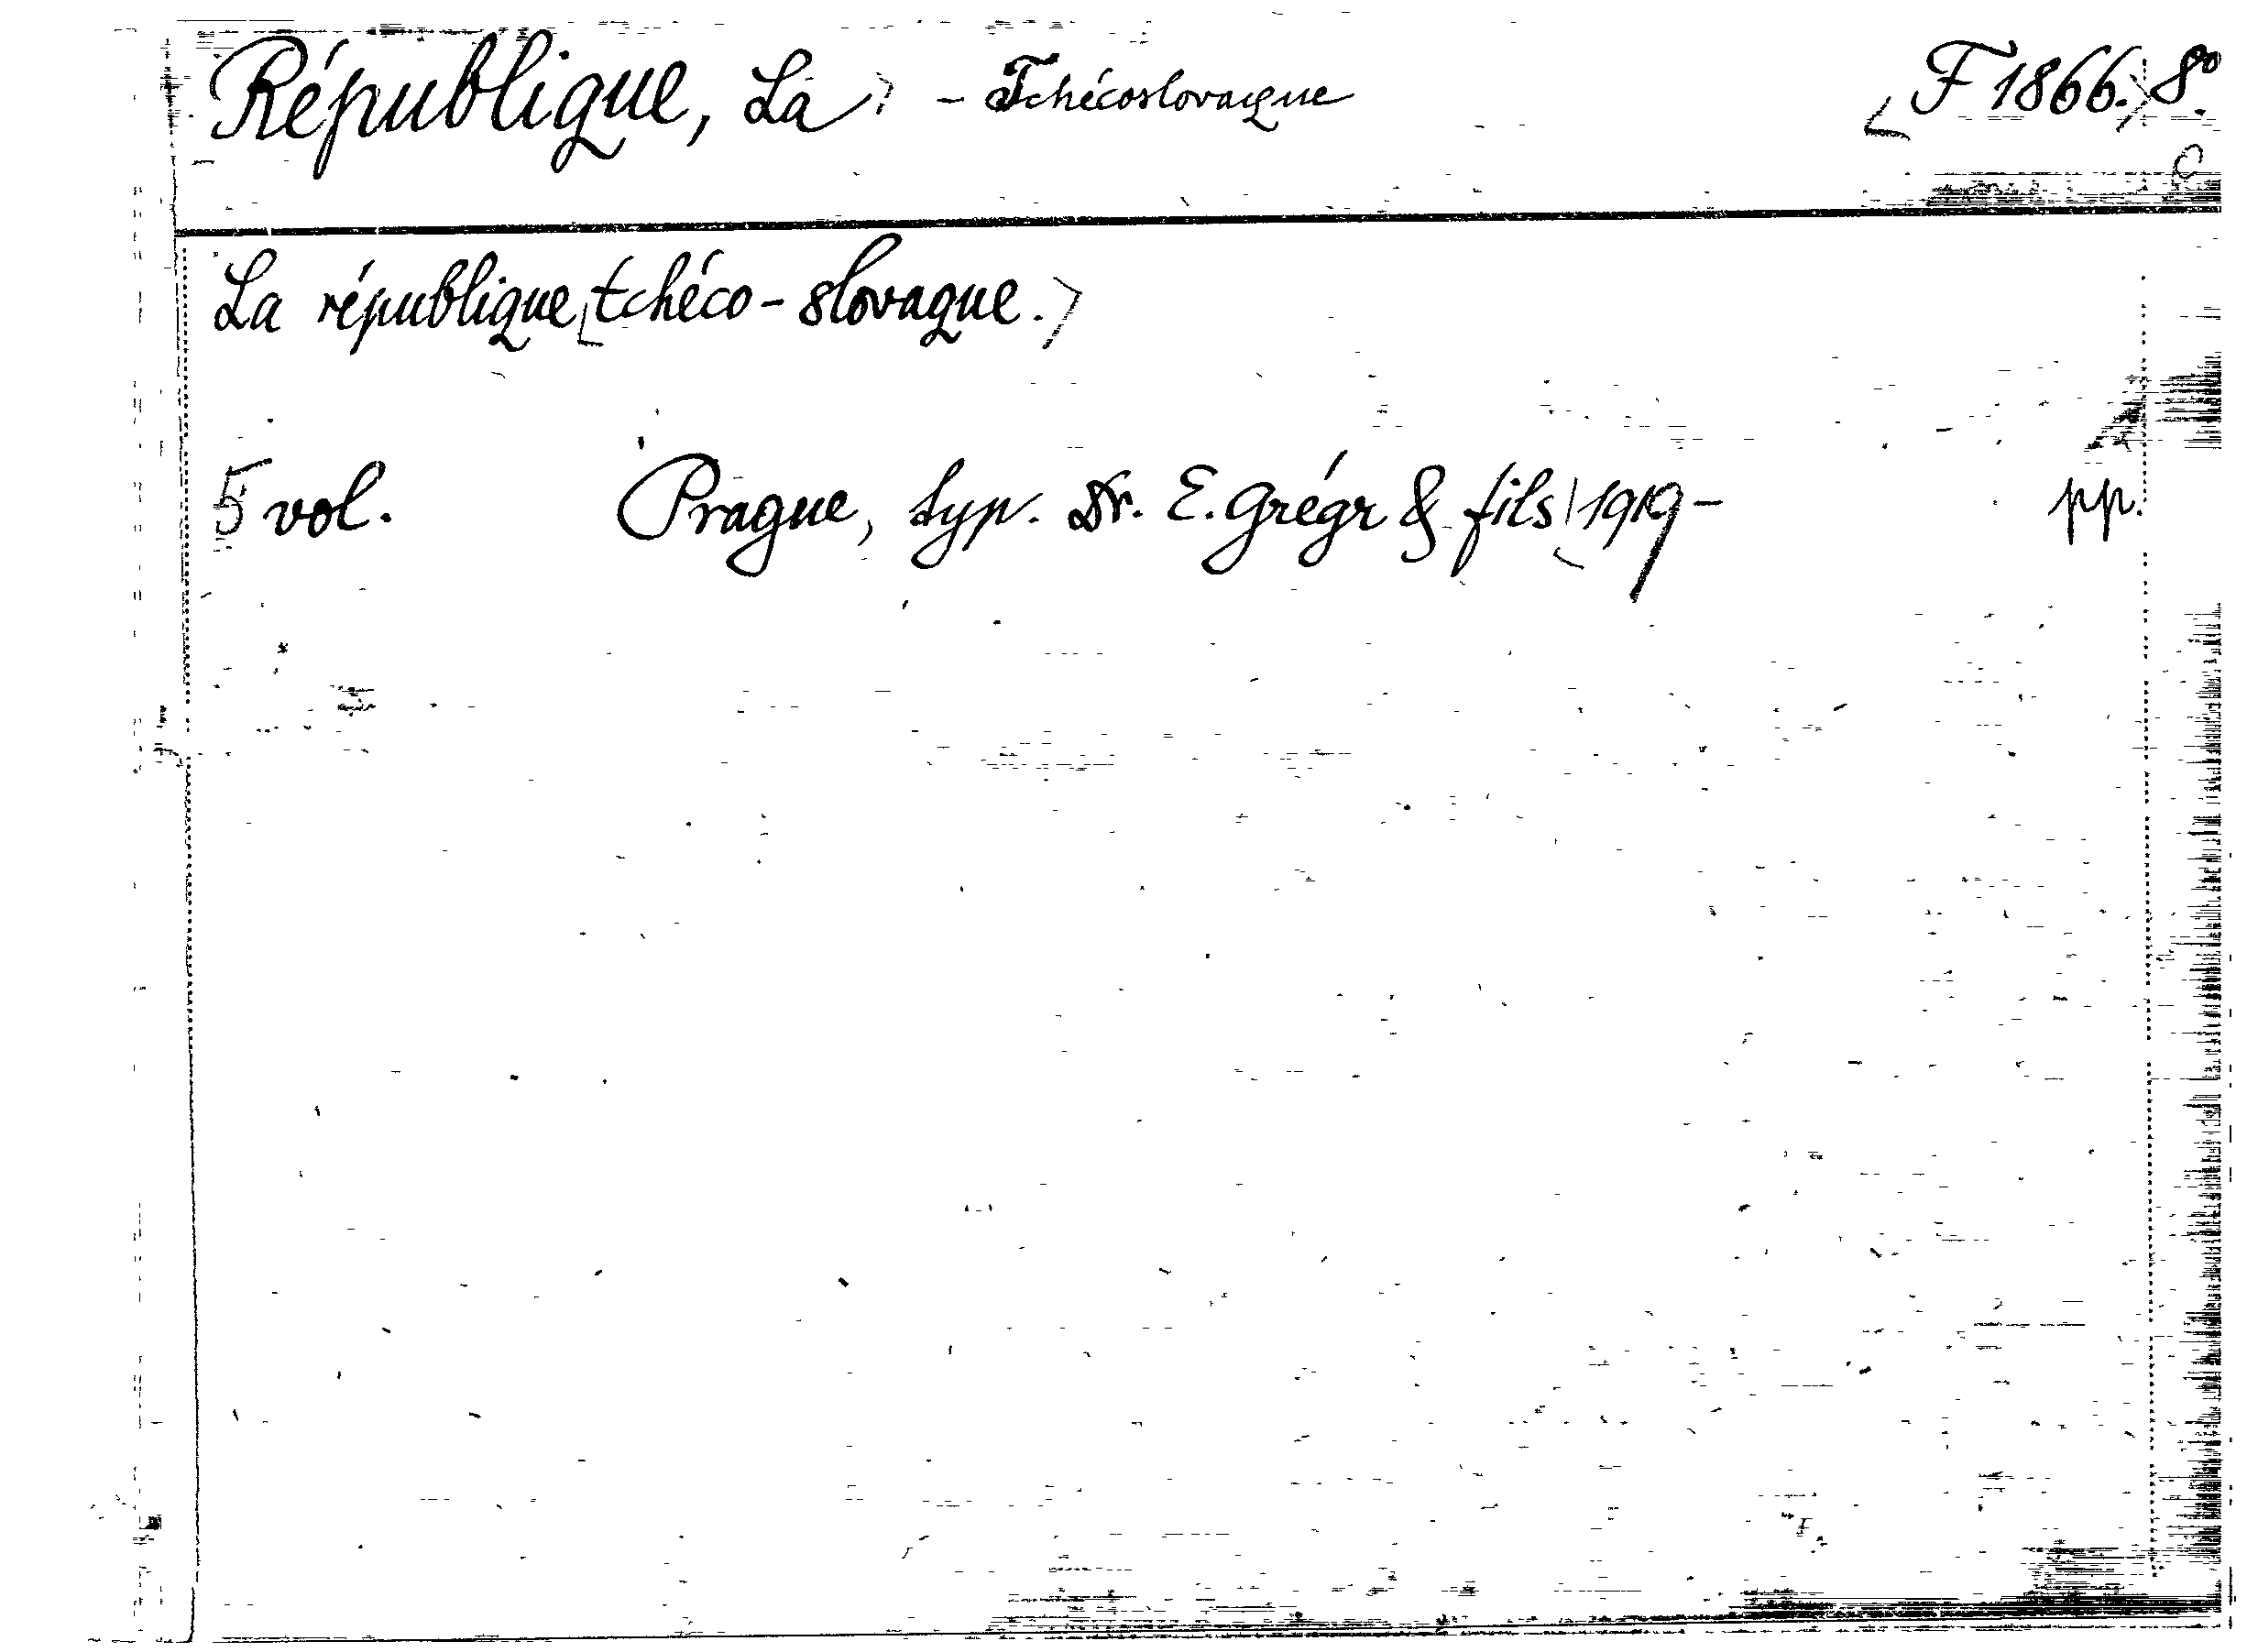 République, La - Tchécoslovaque F 1866. 8°
C
La république tchéco-slovaque.
5 vol. Prague, typ. Dr. E. Grégr & fils 1919- pp.